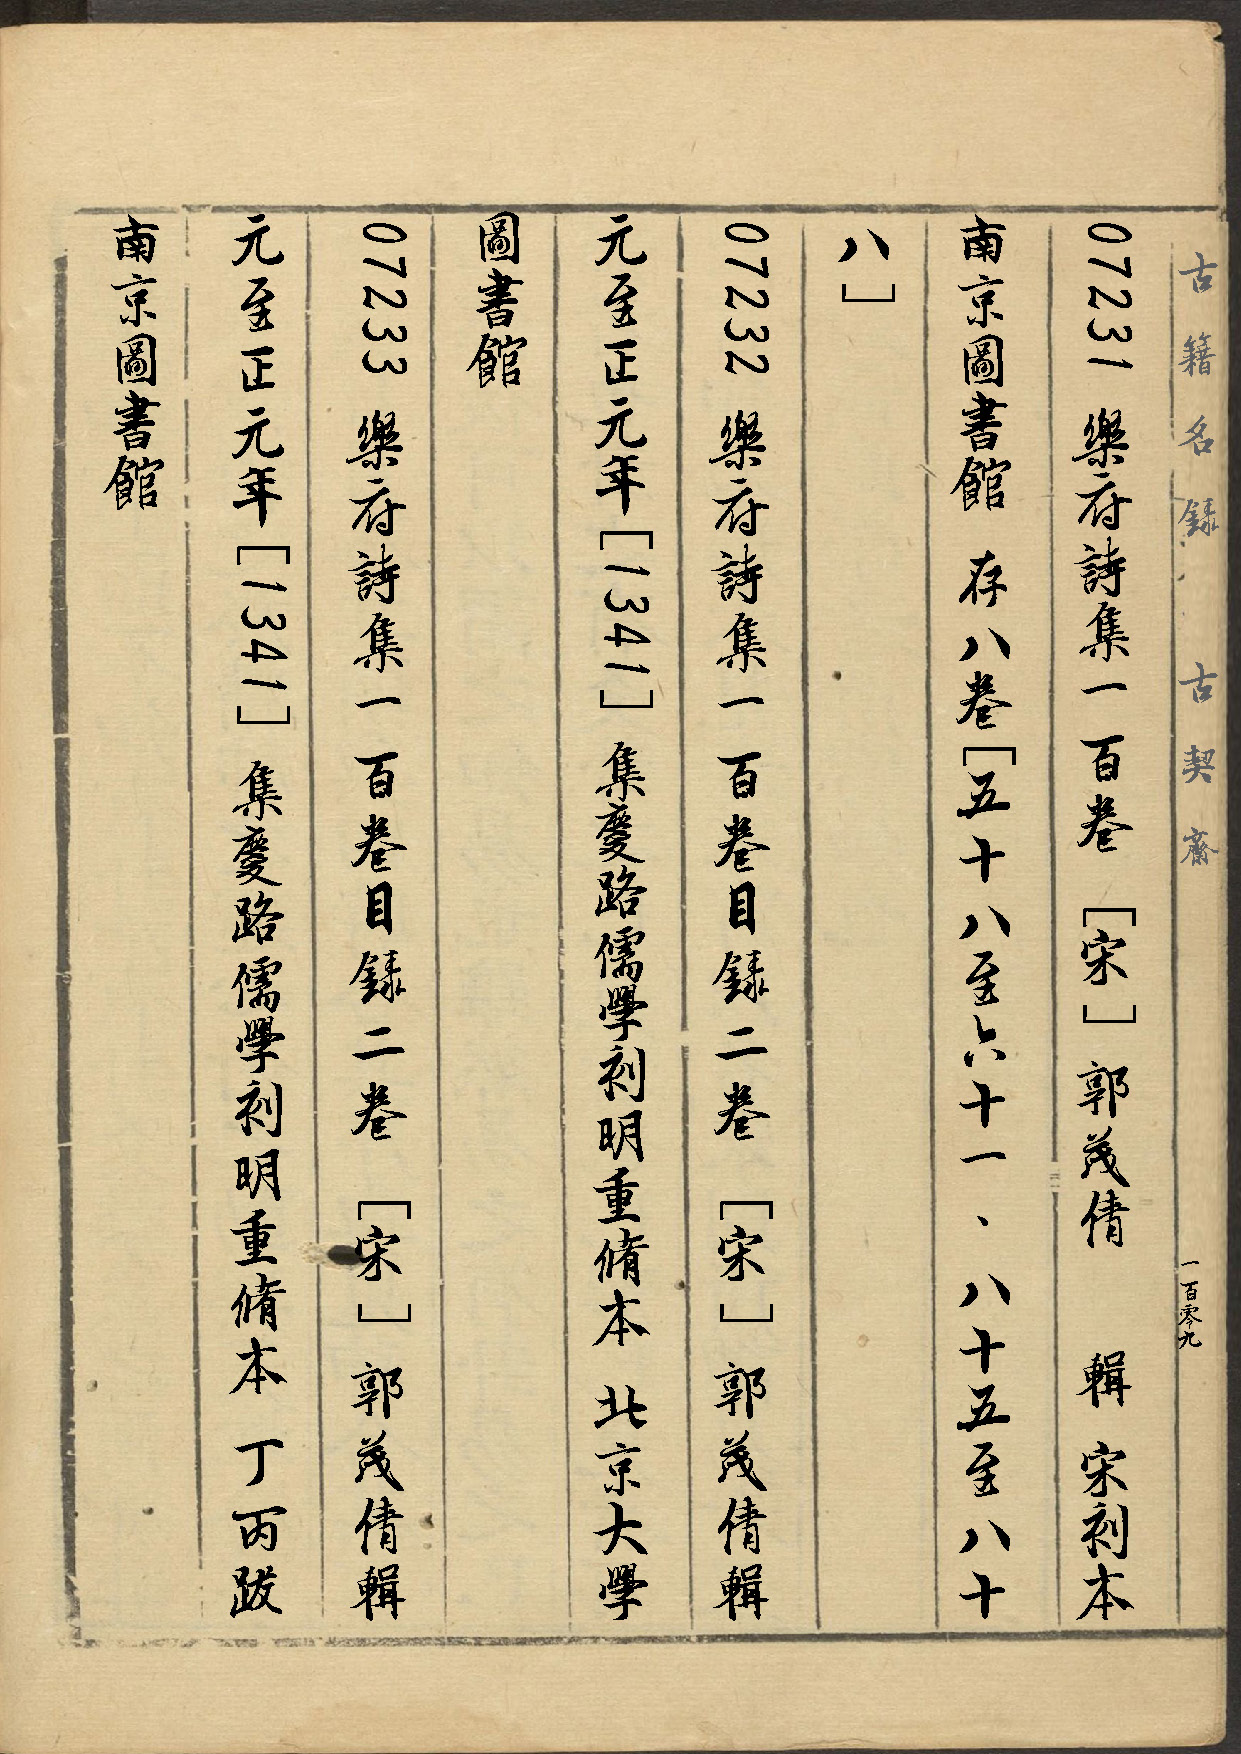 古籍名錄 古契齋
一百零九
07231 樂府詩集一百卷 [宋] 郭茂倩 輯 宋刻本
南京圖書館 存八卷[五十八至六十一、八十五至八十
八]
07232 樂府詩集一百卷目錄二卷 [宋] 郭茂倩輯
元至正元年[1341] 集慶路儒學刻明重脩本 北京大學
圖書館
07233 樂府詩集一百卷目錄二卷 [宋] 郭茂倩輯
元至正元年[1341] 集慶路儒學刻明重脩本 丁丙跋
南京圖書館